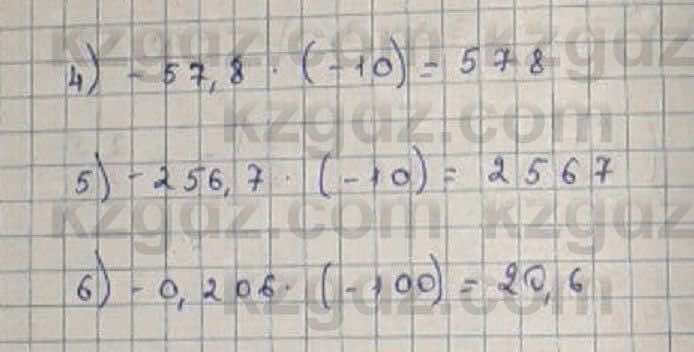 kzgdz.com kzgdz.com
4) - 57,8 · (-10) = 578
kzgdz.com
5) - 256,7 · (-10) = 2567
kzgdz.com kzgdz.com
6) - 0,206 · (-100) = 20,6
kzgdz.com